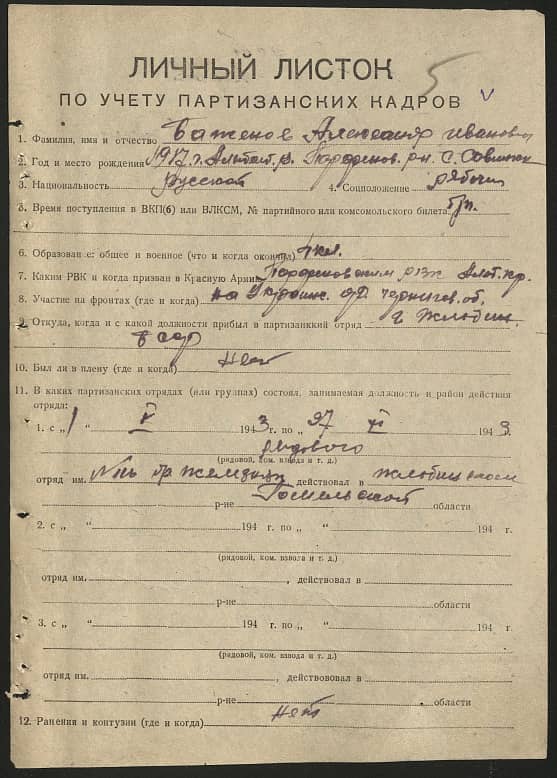 5
ЛИЧНЫЙ ЛИСТОК
ПО УЧЕТУ ПАРТИЗАНСКИХ КАДРОВ
1. Фамилия, имя и отчество Баженов Александр Иванович
2. Год и место рождения 1917 г. р-н. с.
3. Национальность Русский 4. Соцположение рабочий
5. Время поступления в ВКП(б) или ВЛКСМ, № партийного или комсомольского билета б/п.
6. Образование: общее и военное (что и когда окончил) 4 кл.
7. Каким РВК и когда призван в Красную Армию РВК Алт. кр.
8. Участие на фронтах (где и когда) на Украинск. Чернигов. об.
9. Откуда, когда и с какой должности прибыл в партизанкий отряд г. Жлобин.
10. Был ли в плену (где и когда) Нет
11. В каких партизанских отрядах (или группах) состоял, занимаемая должность и район действия
отряда:
1. с „ 1 “ V 1943 г. по „ 27 “ XI 1943 г.
рядового
(рядовой, ком. взвода и т. д.)
отряд им. действовал в Жлобинском
р-не Гомельской области
2. с „ “ 194 г. по „ “ 194 г.
(рядовой, ком. взвода и т. д.)
отряд им. , действовал в
р-не области
3. с „ “ 194 г. по „ “ 194 г.
(рядовой, ком. взвода и т. д.)
отряд им. , действововал в
р-не области
12. Ранения и контузии (где и когда) Нет